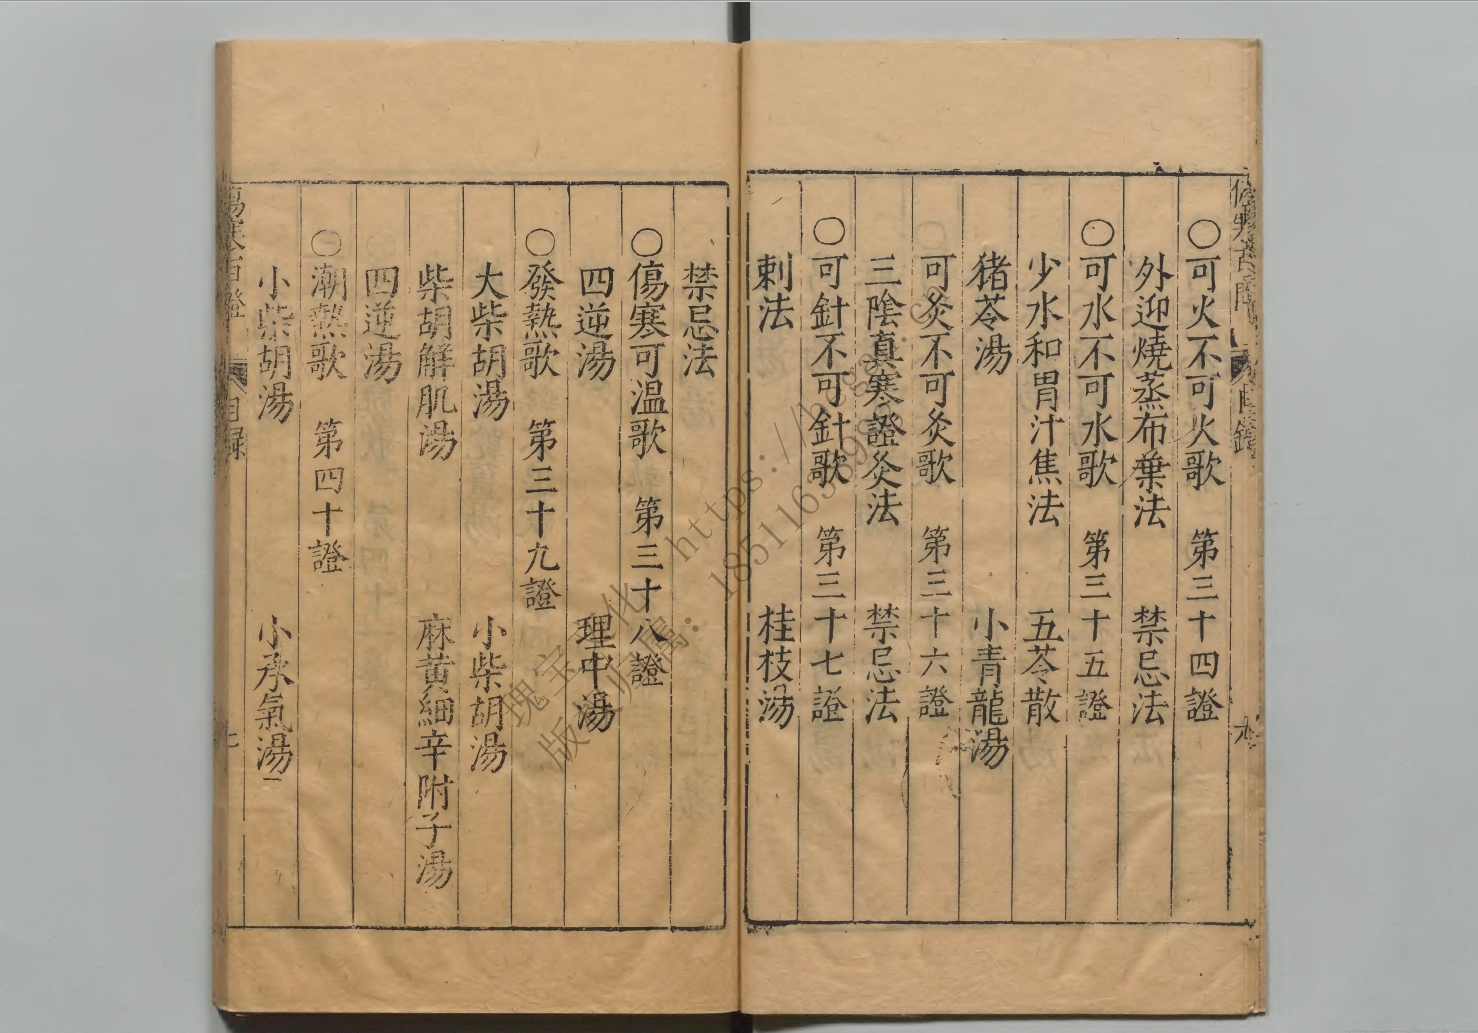 ○可火不可火歌　第三十四證
外迎燒蒸布葉法　禁忌法
○可水不可水歌　第三十五證
少水和胃汁焦法　五苓散
猪苓湯　小青龍湯
○可灸不可灸歌　第三十六證
三陰真寒證灸法　禁忌法
○可針不可針歌　第三十七證
刺法　桂枝湯
禁忌法
○傷寒可溫歌　第三十八證
四逆湯　理中湯
○發熱歌　第三十九證
大柴胡湯　小柴胡湯
柴胡解肌湯　麻黃細辛附子湯
四逆湯
○潮熱歌　第四十證
小柴胡湯　小承氣湯
傷寒百證　目録
瑰宝文化 https://
版权归属: 185116389